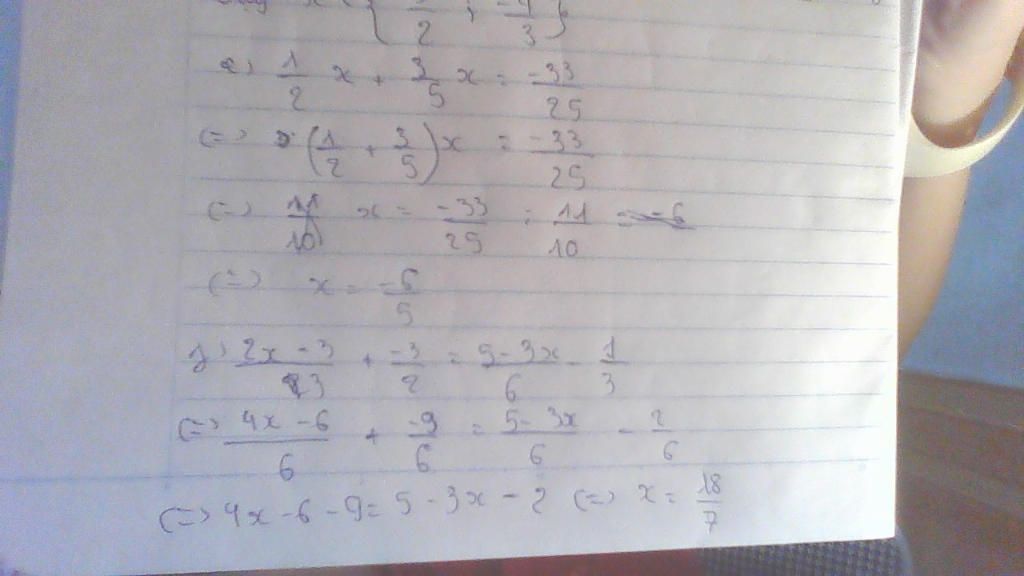 { /2 ; /3 }
e) 1/2 x + 3/5 x = -33/25
(=) (1/2 + 3/5) x = -33/25
(=) 11/10 x = -33/25 : 11/10 = -6
(=) x = -6/5
f) 2x-3/3 + -3/2 = 5-3x/6 - 1/3
(=) 4x-6/6 + -9/6 = 5-3x/6 - 2/6
(=) 4x-6-9= 5-3x-2 (=) x = 18/7